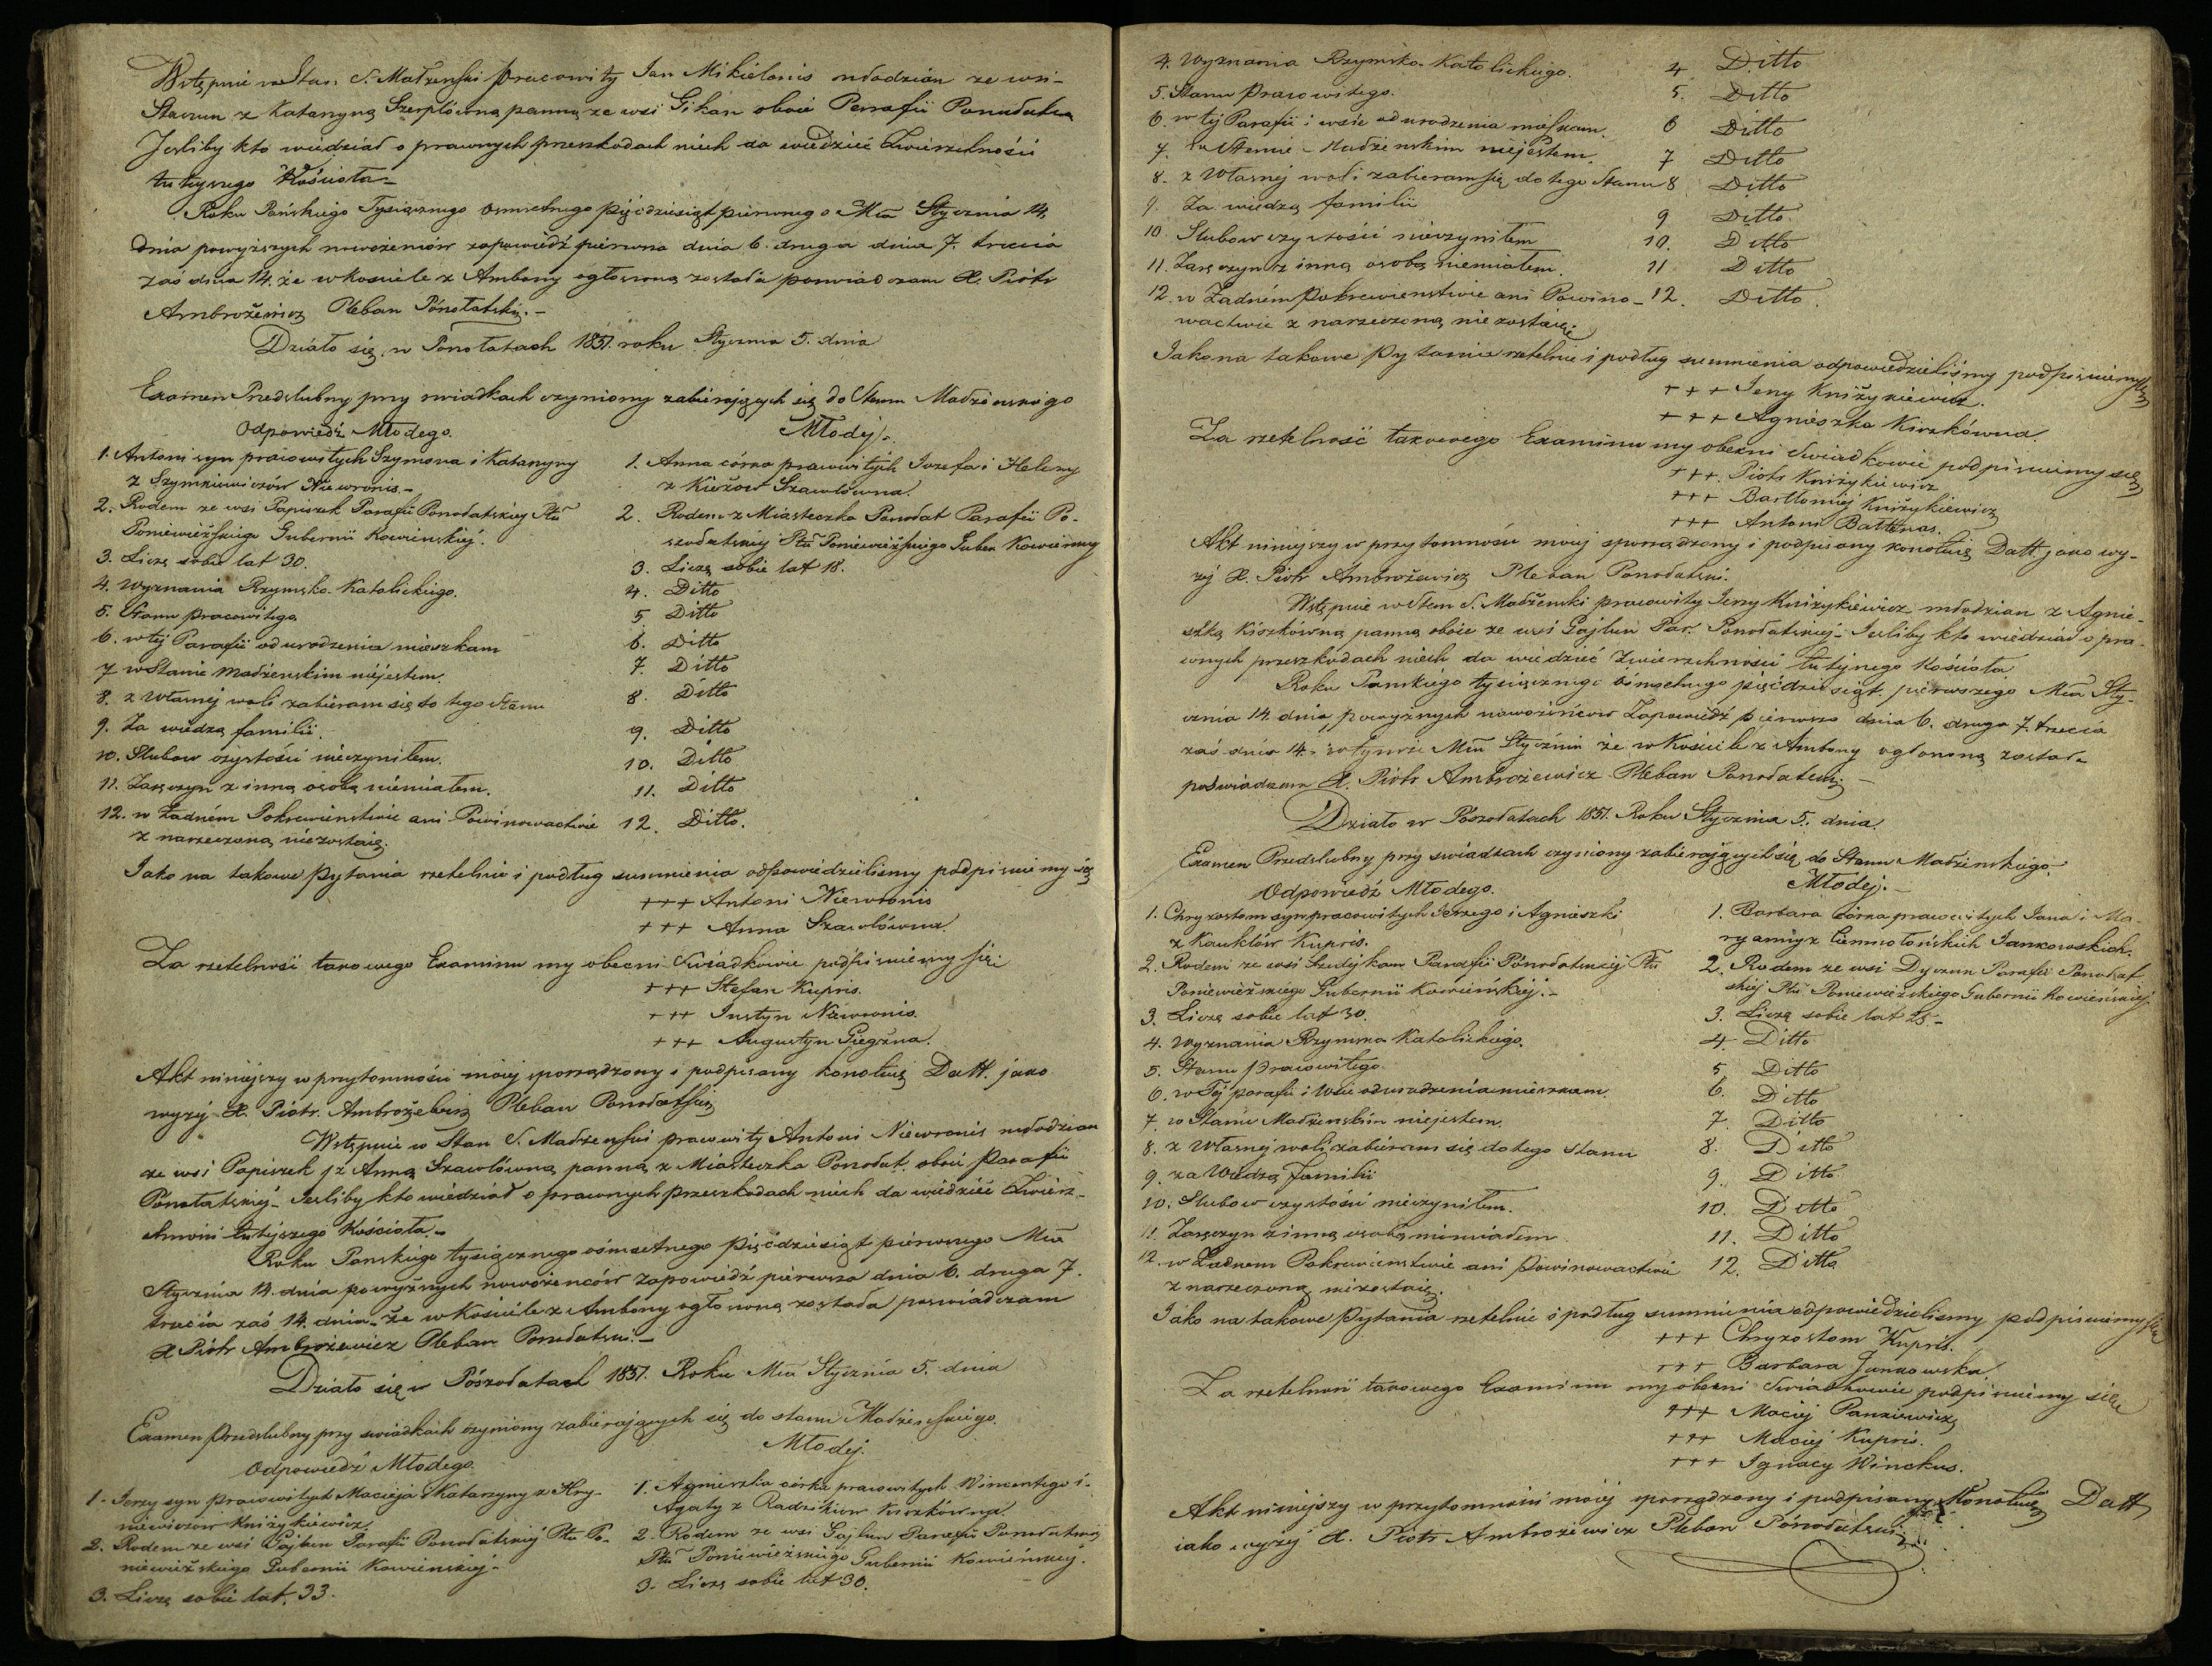 Wstępuie w Stan S. Małżeński pracowity Jan Mikielonis młodzian ze wsi
z Katarzyną panną ze wsi Gikan oboie Parafii
Jesliby kto wiedział o prawnych przeszkodach niech da wiedzieć Zwierzchności
tuteyszego Kościoła
Roku Pańskiego Tysiącznego osmsetnego pięćdziesiąt pierwszego Mca Stycznia 14.
dnia powyższych nowożeniów zapowiedź pierwsza dnia 6. druga dnia 7. trzecia
zaś dnia 14. że w kosciele z Ambony ogłoszoną została poswiadczam X. Piotr
Ambrożewicz Pleban
Działo się w 1851. roku Stycznia 5. dnia
Examen Przedslubny przy swiadkach czyniony zabierających się do Stanu Małżenskiego
Odpowiedź Młodego.
1. Antoni syn pracowitych Szymona i Katarzyny
z Szymkiewiczów Niewronis.
2. Rodem ze wsi Papiszek Parafii Ptu
Poniewieżskiego Gubernii Kowieńskiej.
3. Liczę sobie lat 30.
4. Wyznania Rzymsko-Katolickiego.
5. Stanu pracowitego
6. w tej Parafii od urodzenia mieszkam
7 w Stanie Małżenskim niejestem.
8. z Własnej woli zabieram się do tego Stanu
9. Za wiedzą familii.
10. Slubow czystości nieczyniłem.
11. Zaręczyn z inną osobą niemiałem.
12. w Żadném Pokrewieństwie ani Powinowactwie
z narzeczoną niezostaię.
Młodej.
1. Anna córka pracowitych Jozefa i Heleny
z Szawłówna.
2. Rodem z Miasteczka Parafii Po-
Ptu Poniewieżskiego Guber. Kowieńskiey
3. Liczę sobie lat 18.
4. Ditto
5 Ditto
6. Ditto
7. Ditto
8. Ditto
9. Ditto
10. Ditto
11. Ditto
12. Ditto.
Jako na takowe Pytania rzetelnie i podług sumnienia odpowiedzieliśmy podpisuiemy się
+++ Antoni Niewronis
+++ Anna Szawłówna.
Za rzetelność takowego Examinu my obecni Swiadkowie podpisuiemy się
+++ Stefan Kupris.
+++ Justyn Niewronis.
+++ Augustyn
Akt niniejszy w przytomności mojej sporządzony i podpisany konotuię Datt. jako
wyżej X. Piotr Ambrożewicz Pleban
Wstępuie w Stan S. Małżeński pracowity Antoni Niewronis młodzian
ze wsi Papiszek z Anną Szawłówną panną z Miasteczka oboie Parafii
Jesliby kto wiedział o prawnych przeszkodach niech da wiedzieć Zwierz-
chności tutejszego Kościoła.
Roku Panskiego tysiącznego ośmsetnego Pięćdziesiąt pierwszego Mca
Stycznia 14. dnia powyższych nowożenców zapowiedź pierwsza dnia 6. druga 7.
trzecia zaś 14. dnia że w Kościele z Ambony ogłoszoną została poswiadczam
X Piotr Ambrożewicz Pleban
Działo się w 1851. Roku Mca Stycznia 5. dnia
Examen Przedslubny przy swiadkach czyniony zabierających się do stanu Małżeńskiego.
Odpowiedź Młodego.
1. Jerzy syn pracowitych Macieja i Katarzyny z Hry-
niewiczow Kniżykiewicz
2. Rodem ze wsi Gajlun Parafii Ptu Po-
niewieżskiego Gubernii Kowienskiej.
3. Liczę sobie lat 33.
Młodej.
1. Agnieszka córka pracowitych Wincentego i
Agaty z Kiszkówna
2. Rodem ze wsi Gajlun Parafii
Ptu Poniewieżskiego Gubernii Kowieńskiej.
3. Liczę sobie lat 30.
4. Wyznania Rzymsko-Katolickiego.
5. Stanu Pracowitego.
6. w tej Parafii i wsie od urodzenia mieszkam.
7. w Stanie Małżenskim niejestem.
8. z Własnej woli zabieram się do tego Stanu
9. Za wiedzą familii
10. Slubow czystości nieczyniłem
11. Zaręczyn z inną osobą niemiałem.
12. w Żadném Pokrewienstwie ani Powino-
wactwie z narzeczoną niezostaię
4 Ditto
5. Ditto
6 Ditto
7 Ditto
8 Ditto
9 Ditto.
10. Ditto
11 Ditto
12. Ditto.
Jako na takowe Pytania rzetelnie i podług sumnienia odpowiedzieliśmy podpisuiemy się
+++ Jerzy Kniżykiewicz.
+++ Agnieszka Kiszkówna.
Za rzetelność takowego Examinu my obecni Swiadkowie podpisuiemy się
+++ Piotr Kniżykiewicz
+++ Bartłomiej Kniżykiewicz
+++ Antoni
Akt niniejszy w przytomności moiej sporządzony i podpisany konotuię Datt jako wy-
żej X. Piotr Ambrożewicz Pleban
Wstępuie w Stan S. Małżenski pracowity Jerzy Kniżykiewicz młodzian z Agnie-
szką Kiszkówną panną oboie ze wsi Gajlun Par. Jesliby kto wiedział o pra-
wnych przeszkodach niech da wiedzieć Zwierzchności tutejszego Kościoła.
Roku Panskiego tysiącznego ósmsetnego pięćdziesiąt pierwszego Mca Sty-
cznia 14. dnia powyższych nowożeńcow Zapowiedź pierwsza dnia 6. druga 7. trzecia
zaś dnia 14. Mca Stycznia że w Kościele z Ambony ogłoszoną została
poświadczam X. Piotr Ambrożewicz Pleban
Działo w 1851. Roku Stycznia 5. dnia.
Examen Przedslubny przy swiadkach czyniony zabierających się do Stanu Małżenskiego.
Odpowiedź Młodego.
1. Chryzostom syn pracowitych Jerzego i Agnieszki
z Kupris.
2. Rodem ze wsi Parafii Ptu
Poniewieżskiego Gubernii Kowieńskiej.
3. Liczę sobie lat 30.
4. Wyznania Rzymsko Katolickiego.
5. Stanu Pracowitego.
6. w Tej parafii i Wsie od urodzenia mieszkam.
7. w Stanie Małżenskim niejestem.
8. z Własnej woli zabieram się do tego Stanu
9. za Wiedzą familii
10. Slubow czystości nieczyniłem.
11. Zaręczyn z inną osobą niemiałem
12. w Żadnem Pokrewieństwie ani Powinowactwie
z narzeczoną niezostaię.
Młodej.
1. Barbara córka pracowitych Jana i Ma-
Jankowskich.
2. Rodem ze wsi Parafii
Ptu Poniewieżskiego Gubernii Kowieńskiej
3. Liczę sobie lat
4 Ditto
5 Ditto
6. Ditto
7. Ditto
8. Ditto
9. Ditto
10. Ditto
11. Ditto
12. Ditto
Jako na takowe Pytania rzetelnie i podług sumnienia odpowiedzielismy podpisuiemy się
+++ Chryzostom Kupris.
+++ Barbara Jankowska.
Za rzetelność takowego Examinu my obecni Swiadkowie podpisuiemy się
+++ Maciej
+++ Maciej Kupris.
+++ Ignacy Winckus.
Akt niniejszy w przytomności moiej sporządzony i podpisany Konotuię Datt
iako wyżej X. Piotr Ambrożewicz Pleban